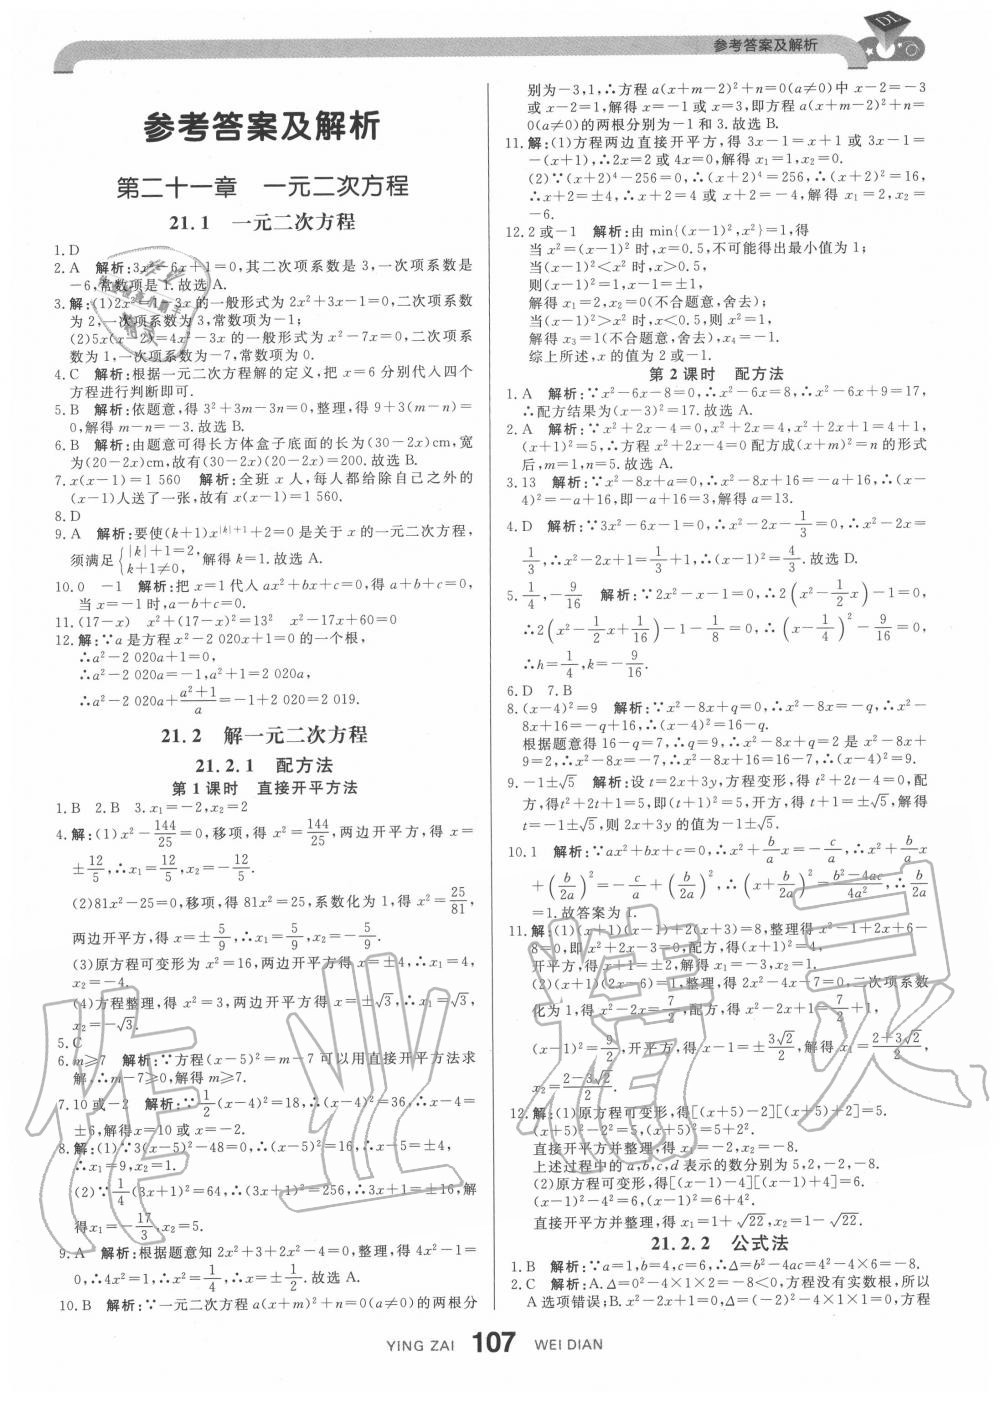 参考答案及解析
DI
参考答案及解析
第二十一章 一元二次方程
21.1 一元二次方程
1.D
2.A 解析:3x²-6x+1=0,其二次项系数是 3,一次项系数是
-6,常数项是1.故选 A.
3.解:(1)2x²=1-3x 的一般形式为 2x²+3x-1=0,二次项系数
为 2,一次项系数为 3,常数项为-1;
(2)5x(x-2)=4x²-3x 的一般形式为 x²-7x=0,二次项系
数为 1,一次项系数为-7,常数项为 0.
4.C 解析:根据一元二次方程解的定义,把 x=6 分别代人四个
方程进行判断即可.
5.B 解析:依题意,得 3²+3m-3n=0,整理,得 9+3(m-n)=
0,解得 m-n=-3.故选 B.
6.B 解析:由题意可得长方体盒子底面的长为(30-2x)cm,宽
为(20-2x)cm,故有(30-2x)(20-2x)=200.故选 B.
7.x(x-1)=1 560 解析:全班 x 人,每人都给除自己之外的
(x-1)人送了一张,故有 x(x-1)=1 560.
8.D
9.A 解析:要使(k+1)x^{|k|+1}+2=0 是关于 x 的一元二次方程,
须满足{|k|+1=2, k+1≠0, 解得 k=1.故选 A.
10.0 -1 解析:把 x=1 代人 ax²+bx+c=0,得 a+b+c=0,
当 x=-1 时,a-b+c=0.
11.(17-x) x²+(17-x)²=13² x²-17x+60=0
12.解:∵a 是方程 x²-2 020x+1=0 的一个根,
∴a²-2 020a+1=0,
∴a²-2 020a=-1,a²+1=2 020a,
∴a²-2 020a+(a²+1)/a=-1+2 020=2 019.
21.2 解一元二次方程
21.2.1 配方法
第 1 课时 直接开平方法
1.B 2.B 3.x₁=-2,x₂=2
4.解:(1)x²-144/25=0,移项,得 x²=144/25,两边开平方,得 x=
±12/5,∴x₁=12/5,x₂=-12/5.
(2)81x²-25=0,移项,得 81x²=25,系数化为 1,得 x²=25/81,
两边开平方,得 x=±5/9,∴x₁=5/9,x₂=-5/9.
(3)原方程可变形为 x²=16,两边开平方,得 x=±4,∴x₁=4,
x₂=-4.
(4)方程整理,得 x²=3,两边开平方,得 x=±√3,∴x₁=√3,
x₂=-√3.
5.C
6.m≥7 解析:∵方程(x-5)²=m-7 可以用直接开平方法求
解,∴m-7≥0,解得 m≥7.
7.10 或-2 解析:∵1/2(x-4)²=18,∴(x-4)²=36,∴x-4=
±6,解得 x=10 或 x=-2.
8.解:(1)∵3(x-5)²-48=0,∴(x-5)²=16,∴x-5=±4,
∴x₁=9,x₂=1.
(2)∵1/4(3x+1)²=64,∴(3x+1)²=256,∴3x+1=±16,解
得x₁=-17/3,x₂=5.
9.A 解析:根据题意知 2x²+3+2x²-4=0,整理,得 4x²-1=
0,∴4x²=1,∴x²=1/4,∴x=±1/2.故选 A.
10.B 解析:∵一元二次方程 a(x+m)²+n=0(a≠0)的两根分
别为-3,1,∴方程 a(x+m-2)²+n=0(a≠0)中 x-2=-3
或 x-2=1,解得 x=-1 或 x=3,即方程 a(x+m-2)²+n=
0(a≠0)的两根分别为-1 和 3.故选 B.
11.解:(1)方程两边直接开平方,得 3x-1=x+1 或 3x-1=
-(x+1),∴2x=2 或 4x=0,解得 x₁=1,x₂=0.
(2)∵(x+2)⁴-256=0,∴(x+2)⁴=256,∴(x+2)²=16,
∴x+2=±4,∴x+2=4 或 x+2=-4,解得 x₁=2,x₂=
-6.
12.2 或-1 解析:由 min{(x-1)²,x²}=1,得
当 x²=(x-1)² 时,x=0.5,不可能得出最小值为 1;
当(x-1)²<x² 时,x>0.5,
则(x-1)²=1,x-1=±1,
解得 x₁=2,x₂=0(不合题意,舍去);
当(x-1)²>x² 时,x<0.5,则 x²=1,
解得 x₃=1(不合题意,舍去),x₄=-1.
综上所述,x 的值为 2 或-1.
第 2 课时 配方法
1.A 解析:∵x²-6x-8=0,∴x²-6x=8,∴x²-6x+9=17,
∴配方结果为(x-3)²=17.故选 A.
2.A 解析:∵x²+2x-4=0,x²+2x=4,x²+2x+1=4+1,
(x+1)²=5,∴方程 x²+2x-4=0 配方成(x+m)²=n 的形式
后,m=1,n=5.故选 A.
3.13 解析:∵x²-8x+a=0,∴x²-8x+16=-a+16,∴(x-
4)²=-a+16,即-a+16=3,解得 a=13.
4.D 解析:∵3x²-6x-1=0,∴x²-2x-1/3=0,∴x²-2x=
1/3,∴x²-2x+1=1/3+1,∴(x-1)²=4/3.故选 D.
5.1/4,-9/16 解析:∵2x²-x-1=0,∴2(x²-1/2x)-1=0,
∴2(x²-1/2x+1/16)-1-1/8=0,∴(x-1/4)²-9/16=0,
∴h=1/4,k=-9/16.
6.D 7.B
8.(x-4)²=9 解析:∵x²-8x+q=0,∴x²-8x=-q,∴x²-
8x+16=-q+16,∴(x-4)²=16-q.
根据题意得 16-q=7,∴q=9,∴x²-8x+q=2 是 x²-8x+
9=2,∴x²-8x=-7,∴x²-8x+16=16-7,∴(x-4)²=9.
9.-1±√5 解析:设 t=2x+3y,方程变形,得 t²+2t-4=0,配
方,得t²+2t+1=5,即(t+1)²=5,开方,得 t+1=±√5,解得
t=-1±√5,则 2x+3y 的值为-1±√5.
10.1 解析:∵ax²+bx+c=0,∴x²+b/a x=-c/a,∴x²+b/a x
+(b/2a)²=-c/a+(b/2a)²,∴(x+b/2a)²=(b²-4ac)/4a²,∴b/2a
=1.故答案为 1.
11.解:(1)(x+1)(x-1)+2(x+3)=8,整理得 x²-1+2x+6-
8=0,即 x²+2x-3=0,配方,得(x+1)²=4,
开平方,得 x+1=±2,解得 x₁=-3,x₂=1.
(2)(x+1)(2x-6)=1,整理,得 2x²-4x-7=0,二次项系数
化为 1,得 x²-2x=7/2,配方,得 x²-2x+1=7/2+1,
(x-1)²=9/2,开平方,得 x-1=±3√2/2,解得 x₁=(2+3√2)/2,
x₂=(2-3√2)/2.
12.解:(1)原方程可变形,得[(x+5)-2][(x+5)+2]=5.
(x+5)²-2²=5,(x+5)²=5+2².
直接开平方并整理,得 x₁=-2,x₂=-8.
上述过程中的 a,b,c,d 表示的数分别为 5,2,-2,-8.
(2)原方程可变形,得[(x-1)-4][(x-1)+4]=6.
(x-1)²-4²=6,(x-1)²=6+4².
直接开平方并整理,得 x₁=1+√22,x₂=1-√22.
21.2.2 公式法
1.B 解析:∵a=1,b=4,c=6,∴Δ=b²-4ac=4²-4×6=-8.
2.C 解析:A.Δ=0²-4×1×2=-8<0,方程没有实数根,所以
A 选项错误;B.x²-2x+1=0,Δ=(-2)²-4×1×1=0,方程
作业精灵
YING ZAI 107 WEI DIAN